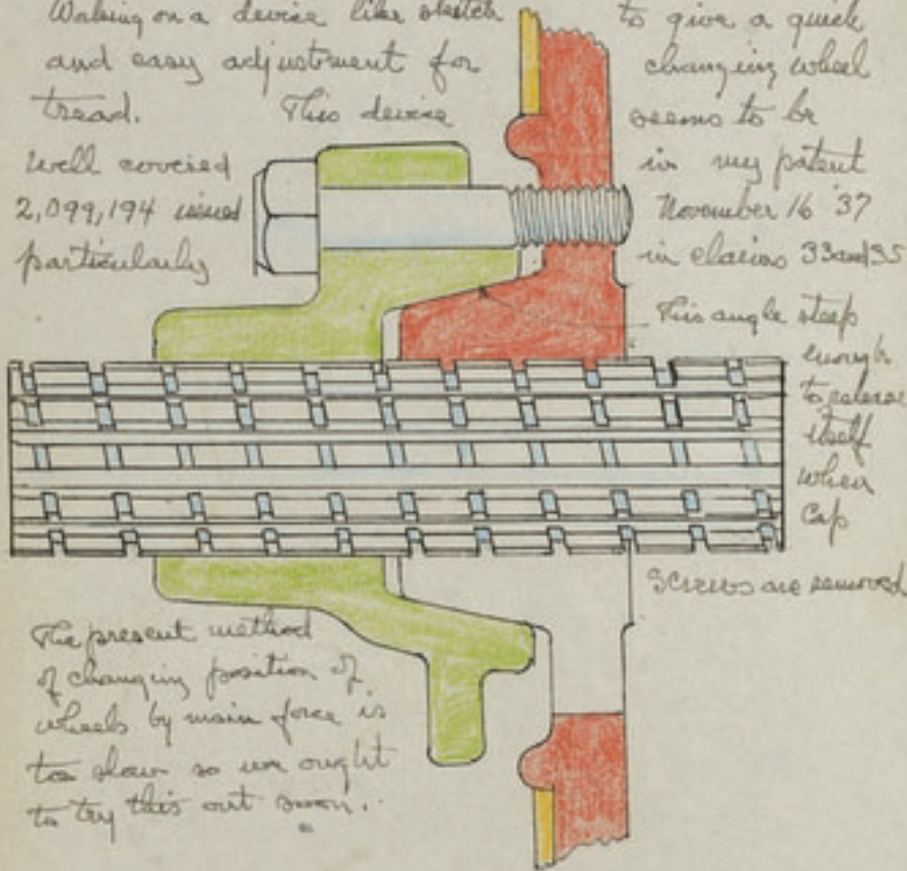 Waking on a device like sketch to give a quick
and easy adjustment for changing wheel
tread. This device seems to be
well covered in my patent
2,099,194 issued November 16 '37
particularly in claims 33 and 35
This angle steep
enough
to release
itself
when
cap
screws are removed
The present method
of changing position of
wheels by main force is
too slow so we ought
to try this out soon.